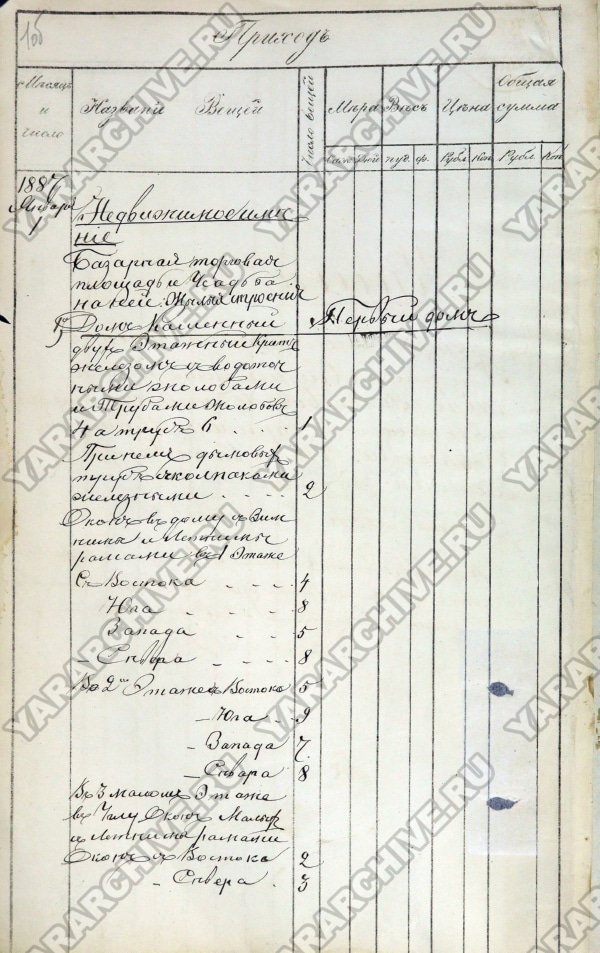 155
Приходъ
Мѣсяцъ и число
Названiй Вещей
Число вещей
Мѣра
Вѣсъ
Цѣна
Общая сумма
пуд. ф. Рубл. Коп. Рубл. Коп
1887
Января
1
Недвижимое имѣ
нiе
Базарная торговая
площадь и Усадьба
на ней: Жилый строенiй
1) Домъ Каменный
Первый домъ
двухъ Этажный крытъ
железомъ съ водоточ
ными жолобами
и Трубами жолобовъ
4 а трубъ 6 . . . . 1
При немъ дымовыхъ
трубъ с колпаками
железными . . . . 2
Оконъ въ дому съ Зим
ними и Летними
рамами въ 1 Этаже
Съ Востока . . . . 4
Юга . . . . 8
Запада . . . 5
– Сѣвера . . . . 8
Въ 2мъ Этаже с Востока 5
– Юга . . 9
– Запада 7
– Сѣвера 8
Въ 3 маломъ Этаже
оконъ
и Летними рамами
Оконъ съ Востока 2
– Сѣвера . 3
YARARCHIVE.RU